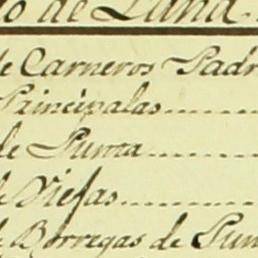 o de Lana
de Carneros Padr
Principalas
de Punta
de Viejas
de Borregas de Pun